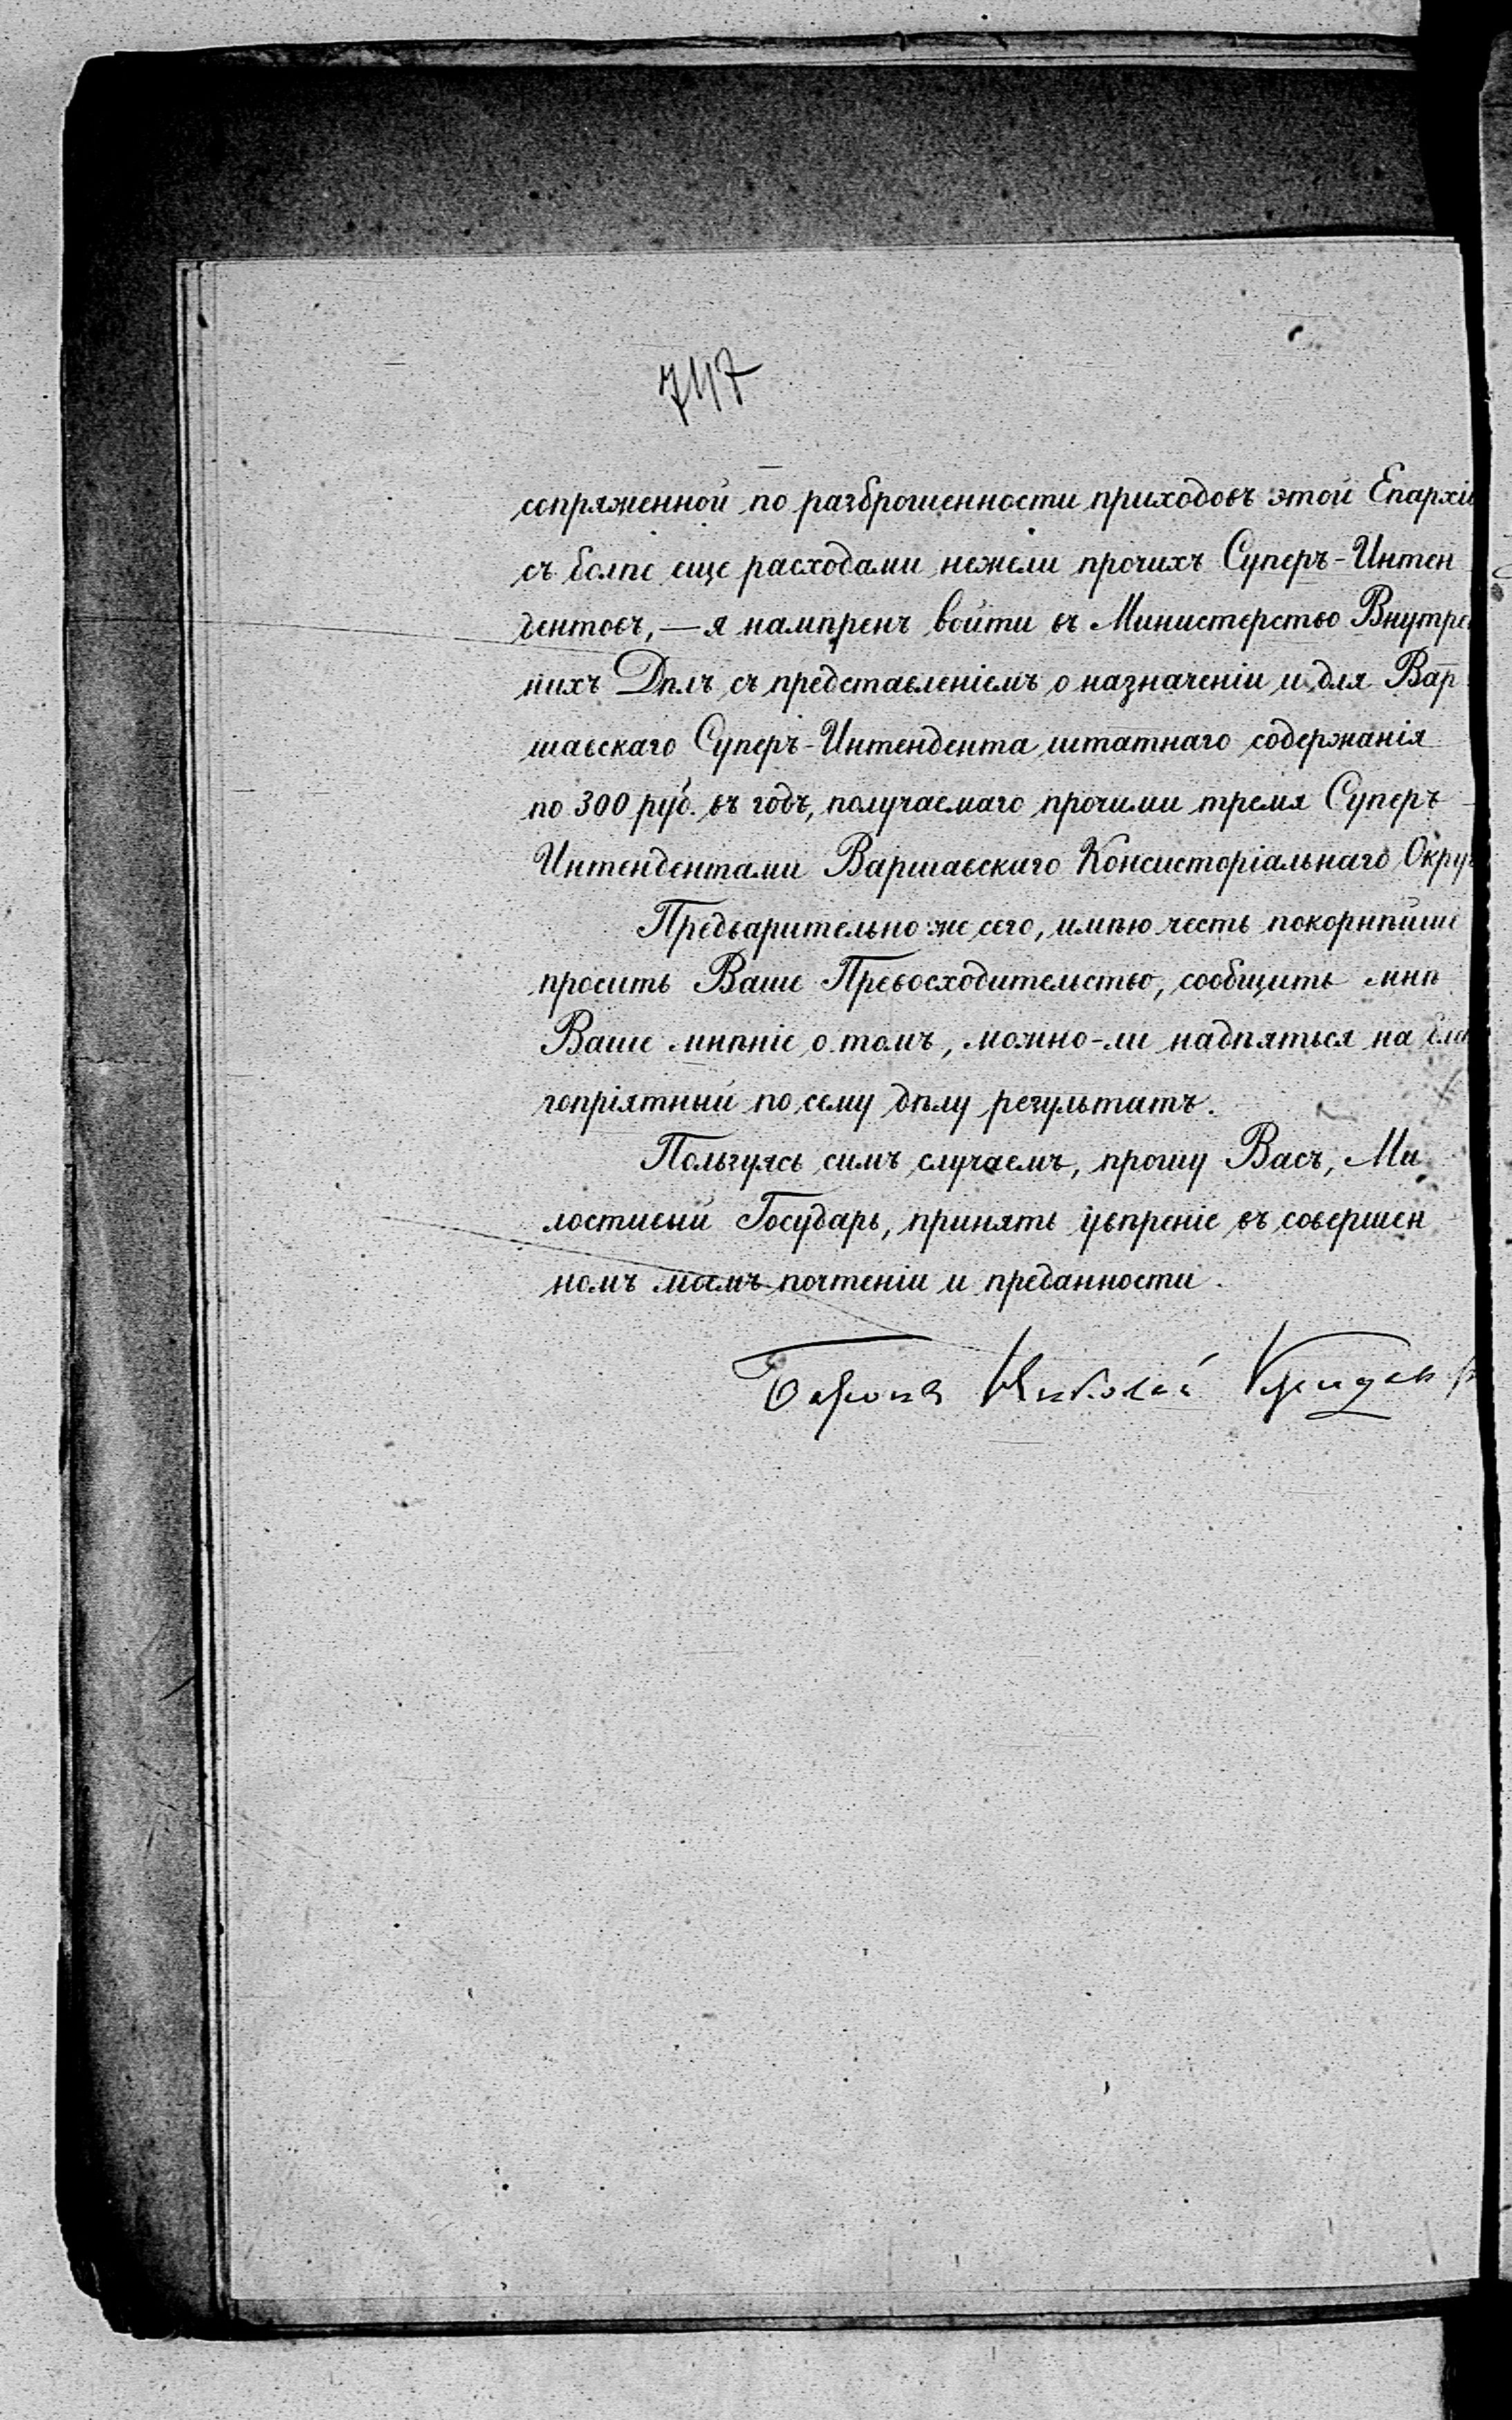 747
сопряженной по разброшенности приходовъ этой Епархіи
съ болѣе еще расходами нежели прочихъ Суперъ-Интен
дентовъ, — я намѣренъ войти въ Министерство Внутрен
нихъ Дѣлъ съ представленіемъ о назначеніи и для Вар
шавскаго Суперъ-Интендента штатнаго содержанія
по 300 руб. въ годъ, получаемаго прочими тремя Суперъ-
Интендентами Варшавскаго Консисторіальнаго Округ
Предварительно же сего, имѣю честь покорнѣйше
просить Ваше Превосходительство, сообщить мнѣ
Ваше мнѣніе о томъ, можно-ли надѣяться на бла
гопріятный по сему дѣлу результатъ.
Пользуясь симъ случаемъ, прошу Васъ, Ми
лостивый Государь, принять увѣреніе въ совершен
номъ моемъ почтеніи и преданности.
Баронъ Николай Криденер